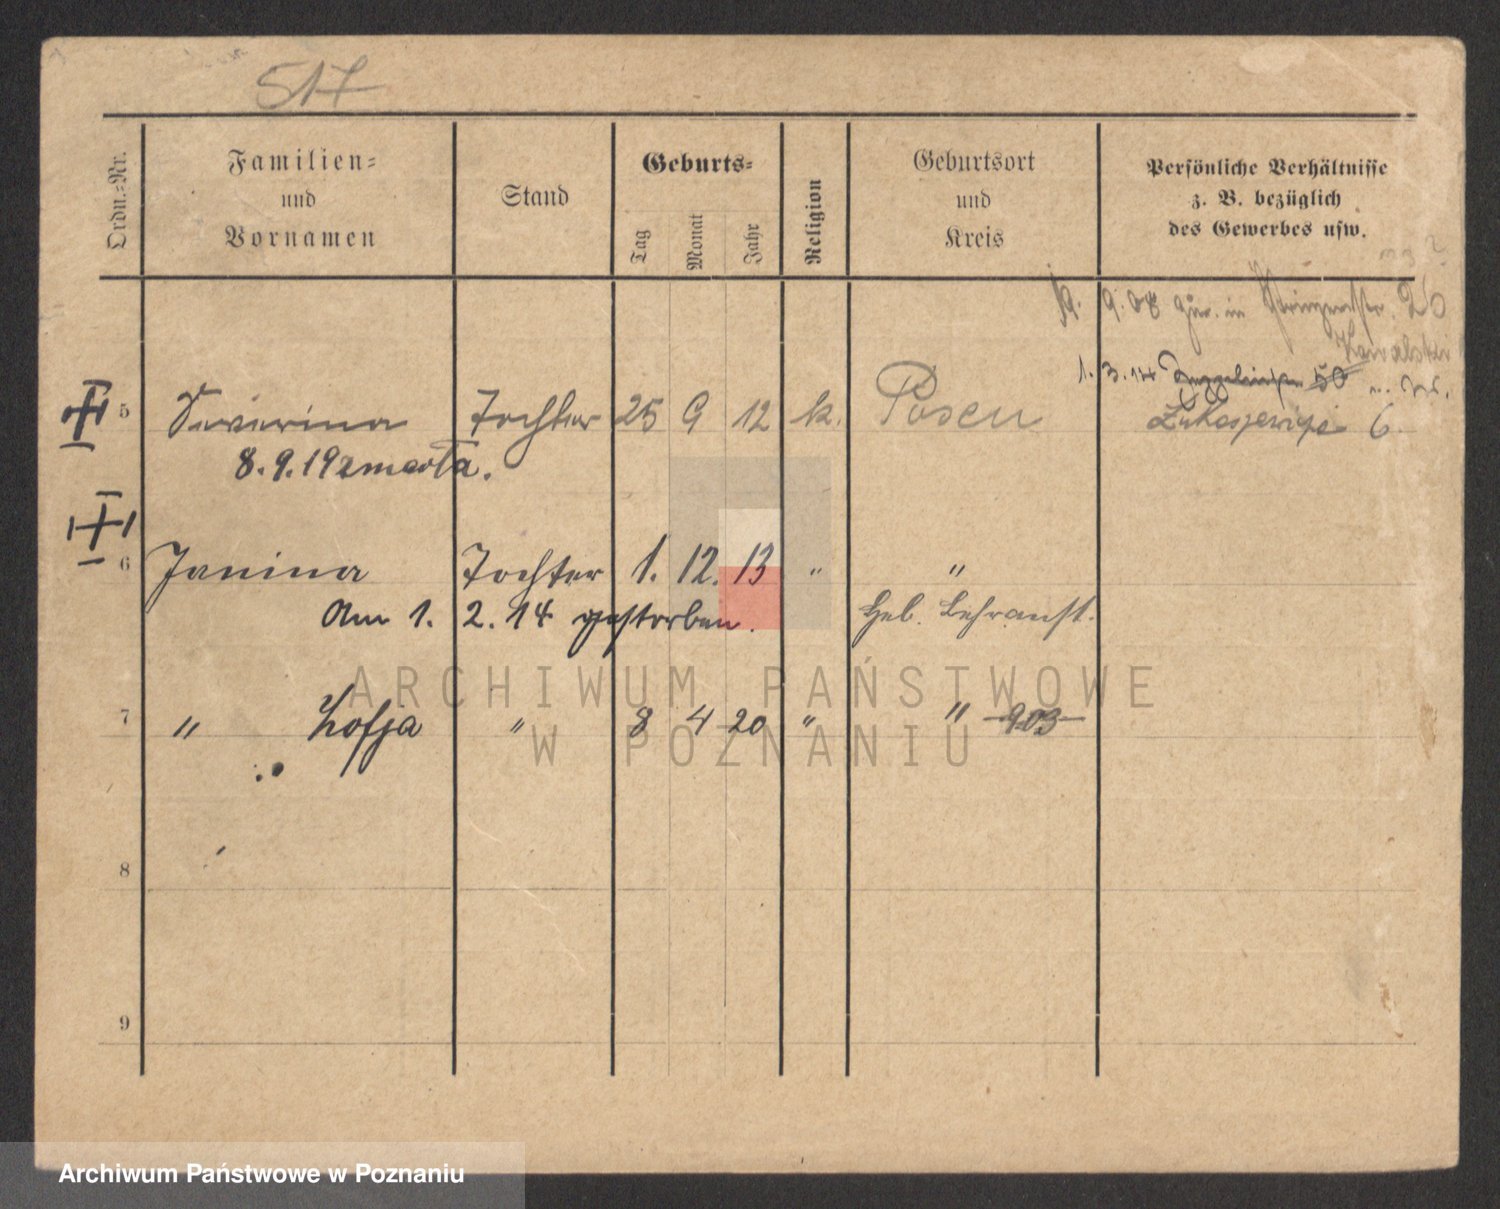 517
Ordn.=Nr.
Familien=
und
Vornamen
Stand
Geburts=
Tag
Monat
Jahr
Religion
Geburtsort
und
Kreis
Persönliche Verhältnisse
z. B. bezüglich
des Gewerbes usw.
9. 08 in 26
1. 3. 14 50
5 Severina Tochter 25 9 12 k. Posen 6.
8. 9. 19 zmarła.
6 Janina Tochter 1. 12. 13 " "
Am 1. 2. 14 gestorben. Heb. Lehranst.
7 " Zofja " 8 4 20 " " 903
8
9
ARCHIWUM PAŃSTWOWE
W POZNANIU
Archiwum Państwowe w Poznaniu